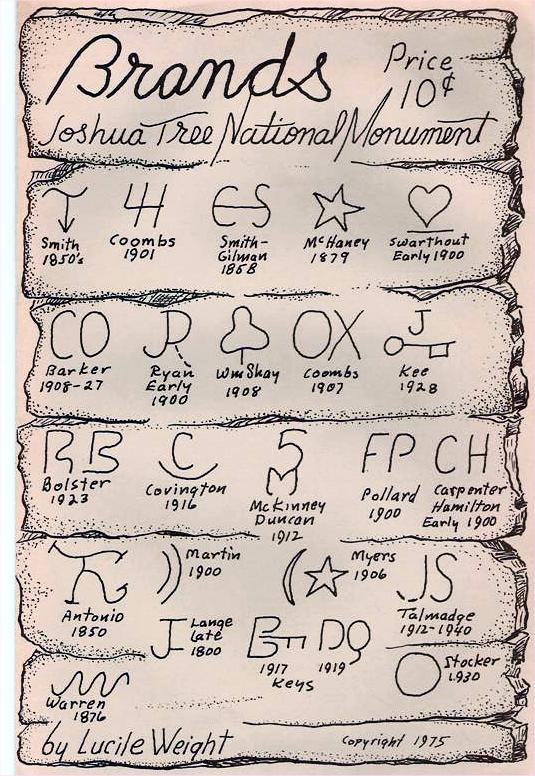 Brands
Price
10¢
Joshua Tree National Monument
Smith
1850's
Coombs
1901
ES
Smith-
Gilman
1858
McHaney
1879
Swarthout
Early 1900
CO
Barker
1908-27
JR
Ryan
Early
1900
Wm Shay
1908
OX
Coombs
1907
J
Kee
1928
BB
Bolster
1923
C
Covington
1916
5
M
McKinney
Duncan
1912
FP
Pollard
1900
CH
Carpenter
Hamilton
Early 1900
Antonio
1850
Martin
1900
Myers
1906
JS
Talmadge
1912-1940
J
Lange
late
1800
1917
DQ
1919
Keys
Stocker
1930
Warren
1876
by Lucile Weight
Copyright 1975